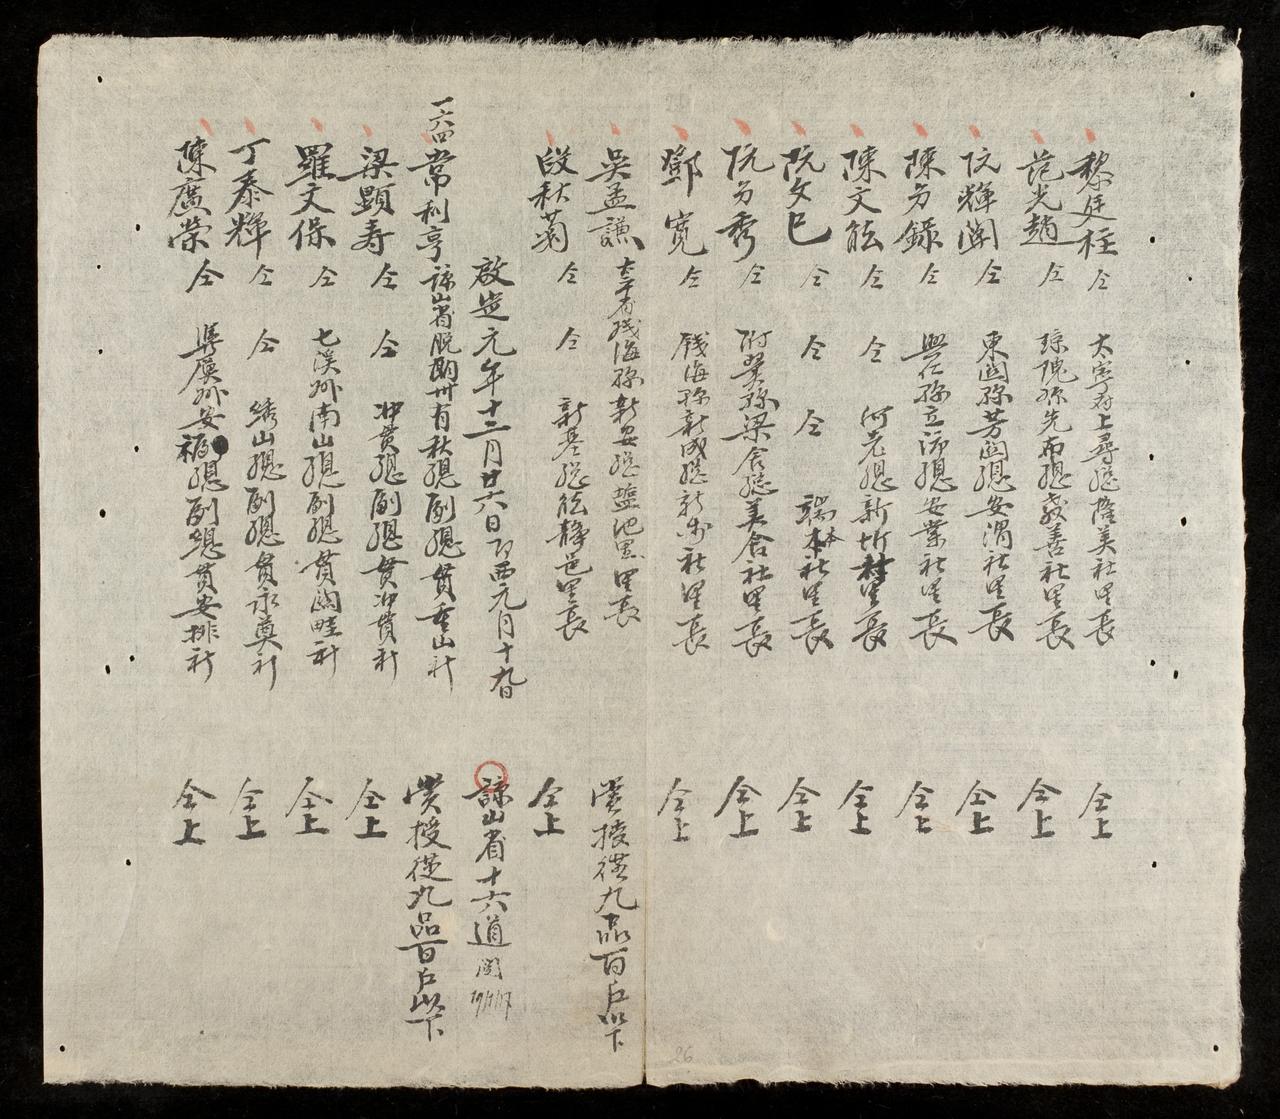 黎廷柱 仝 太寧府上尋總隆美社里長 仝上
范光趙 仝 琼瑰縣先布總義善社里長 仝上
阮輝闊 仝 東関縣芳関總安渭社里長 仝上
陳芳録 仝 興仁縣立沛總安業社里長 仝上
陳文 仝 仝 河老總新圻村里長 仝上
阮文巳 仝 仝 仝 端本社里長 仝上
阮芳秀 仝 附翼縣梁舍總美舍社里長 仝上
鄧寬 仝 錢海縣新成總新 社里長 仝上
吳孟謙 太平省錢海縣新安總塩池里里長 奨授從九品百戶以下
段秋菊 仝 仝 新基總 静邑里長 仝上
啟定元年十二月廿六日即西元月十九日 諒山省十六道 閲 19/1/17
一六四 常利亨 諒山省脱朗州有秋總副總貫重山社 奨授從九品百戶以下
梁顕寿 仝 仝 冲貫總副總貫冲貫社 仝上
羅文保 仝 七溪州南山總副總貫関畦社 仝上
丁泰輝 仝 仝 綉山總副總貫永奠社 仝上
陳廣榮 仝 州安福總副總貫安排社 仝上
26